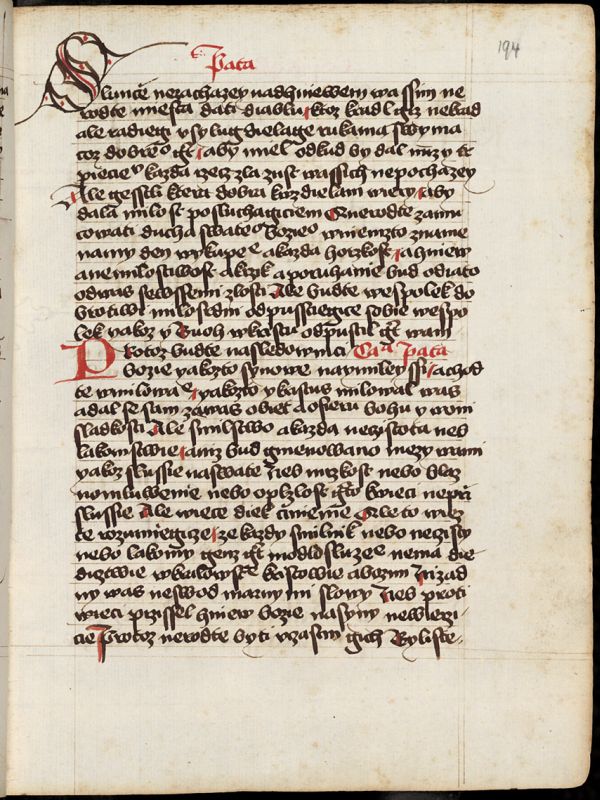 194
Pata
Slunce nezachazey nadhniewem wassim ne
rodte miesta dati diablu ktoz kradl gest nekrad
ale radiegi vsylug dielage rukama swyma
toz dobreo gt aby miel odkud by dal nuzy tr
piecieo kazda rzecz zla zust wassich nepochazey
Ale gestli ktera dobra kuzdielani wiery aby
dala milost posluchagiciem Nerodte zarmu
cowati ducha swateo bozieo wniemzto zname
nany den wykupee akazda horzkost ahniew
anemilostiwost akrzik aporuhanie bud odiato
odwas sewssemi zlosti Ale budte wespolek do
brotiwi milosrdni odpusstiegice sobie wespo
lek yakoz y Buoh wkristu odpustil gt wam
Protoz budte nasledownici Caa Pata
bozie yakozto synowe naymileyssi achod
te wmilowae yakozto ykristus milowal was
adal se sam zawas obiet aofieru bohu ywoni
sladkosti Ale smilstwo akazda neczistota neb
lakomstwie aniz bud gmenowano mezy wami
yakoz slussie naswate Neb mrzkost nebo blaz
nomluwenie nebo oplzlost gto kwieci nepri
slussie Ale wiece diek cinienie Ale to wiez
te rozumiegicze ze kazdy smilnik nebo neczisty
nebo lakomy genz gt modloslusee nema die
dicztwie wkralowste kristowie abozim Nizad
ny was neswod marnymi slowy Neb proti
wieci przissel hniew bozie nasyny newierzi
cie Protoz nerodte byti vczastni gich Byliste